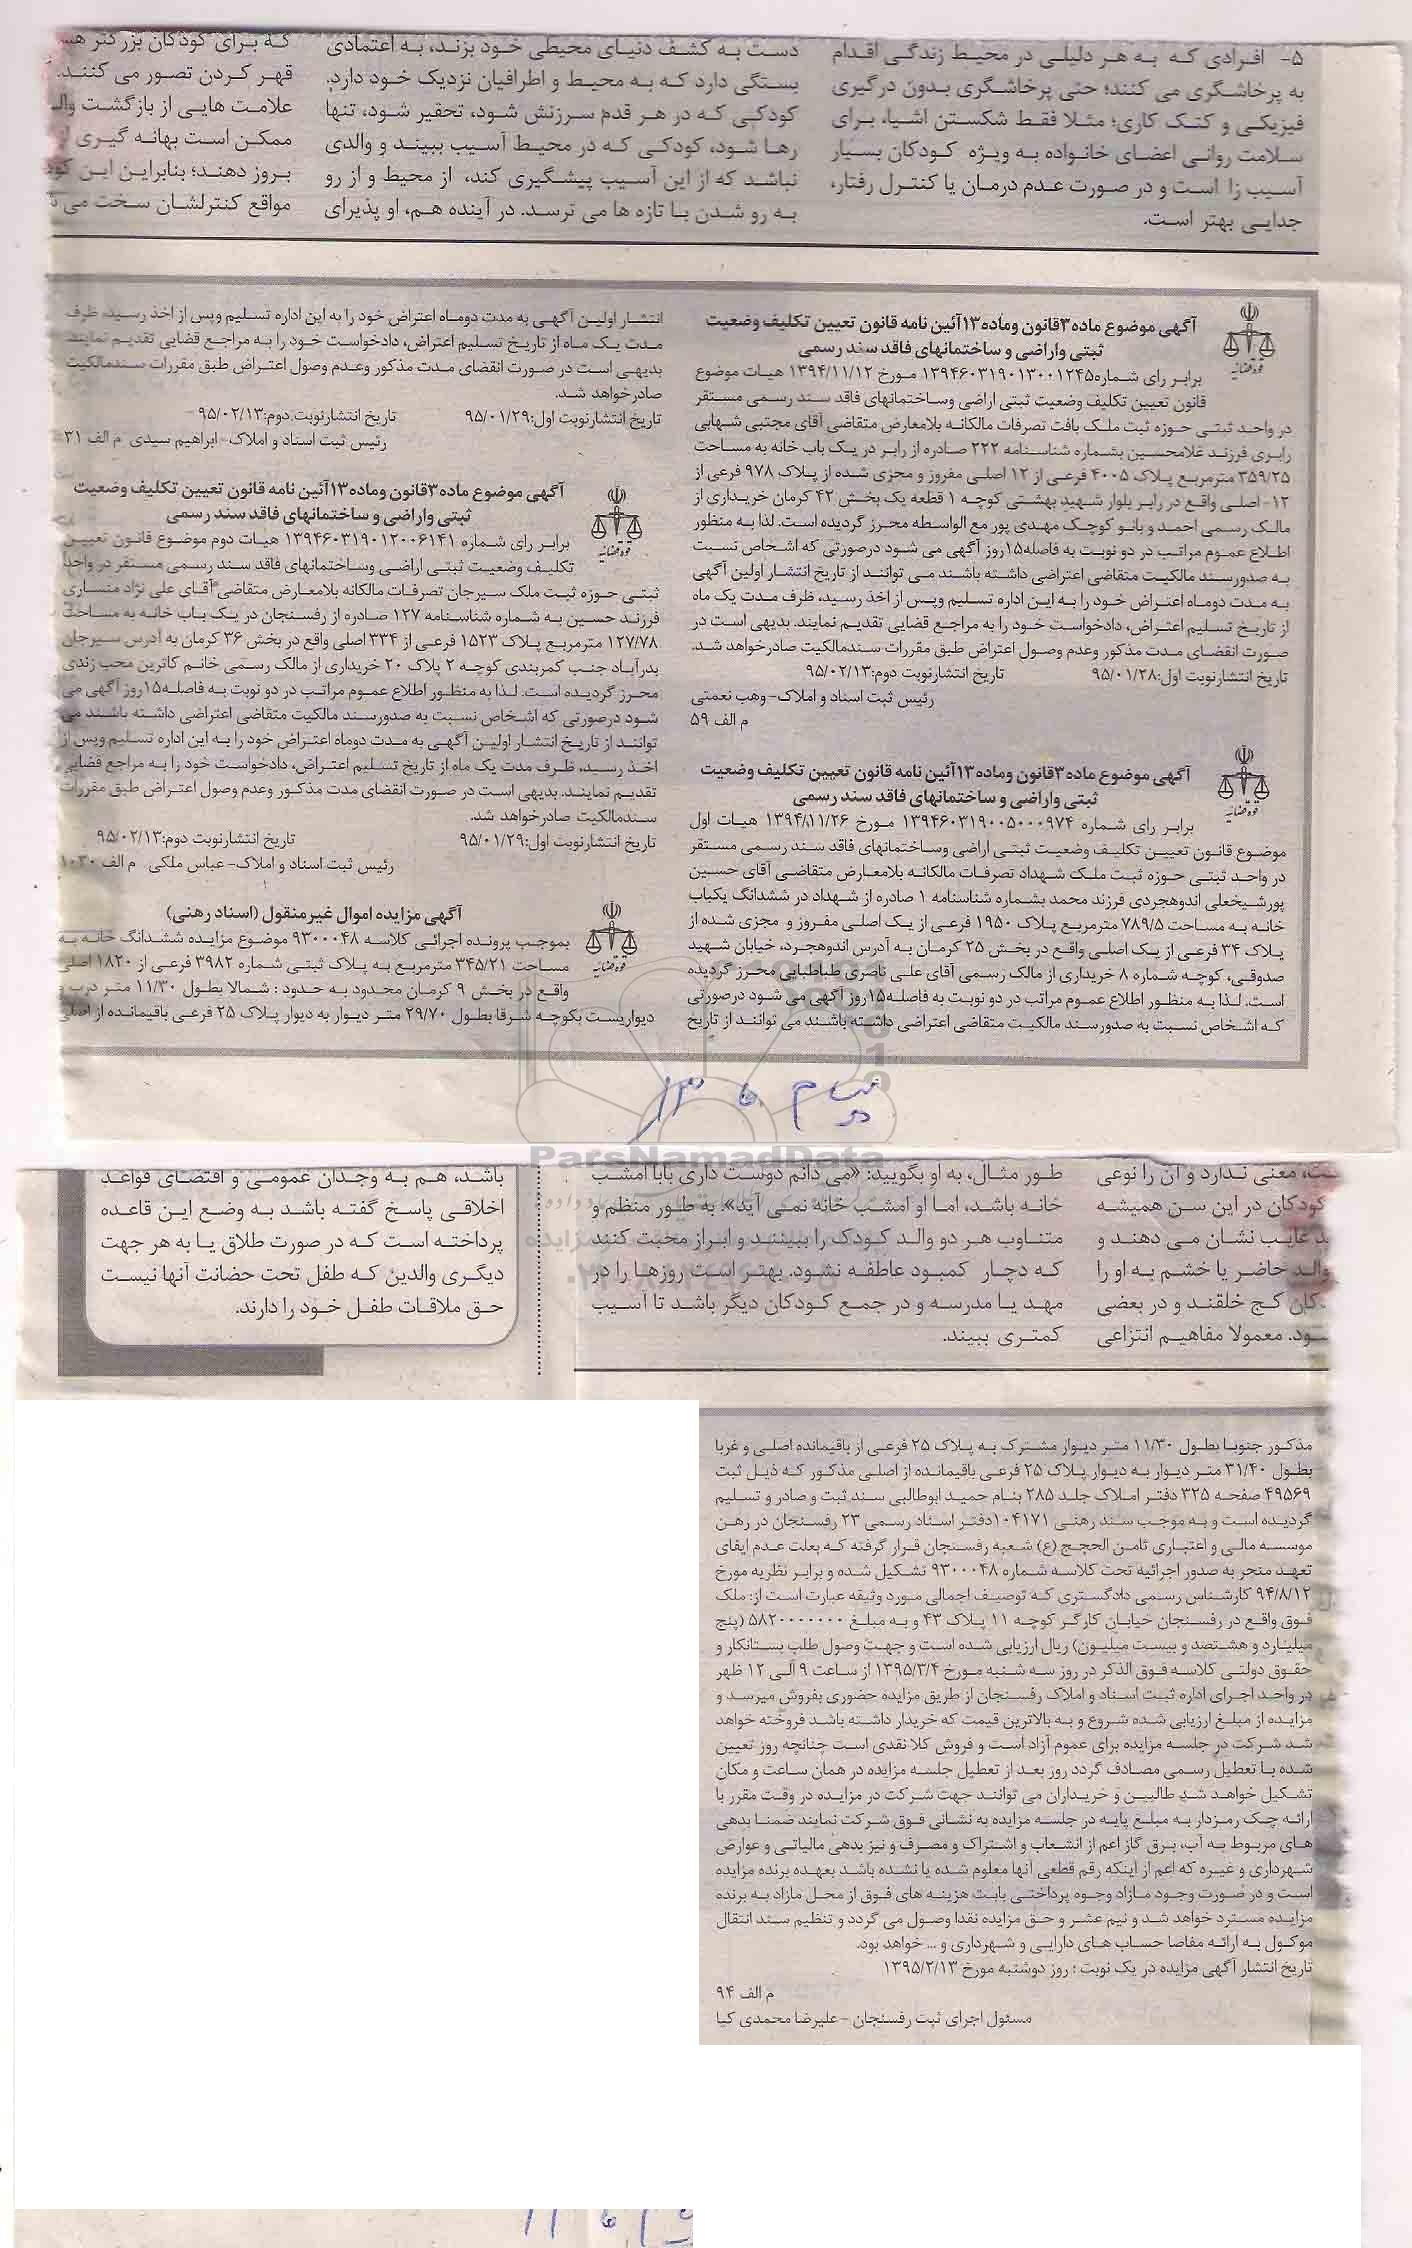 ۵- افرادی که به هر دلیلی در محیط زندگی اقدام
به پرخاشگری می کنند؛ حتی پرخاشگری بدون درگیری
فیزیکی و کتک کاری؛ مثلا فقط شکستن اشیا، برای
سلامت روانی اعضای خانواده به ویژه کودکان بسیار
آسیب زا است و در صورت عدم درمان یا کنترل رفتار،
جدایی بهتر است.
دست به کشف دنیای محیطی خود بزند، به اعتمادی
بستگی دارد که به محیط و اطرافیان نزدیک خود دارد.
کودکی که در هر قدم سرزنش شود، تحقیر شود، تنها
رها شود، کودکی که در محیط آسیب ببیند و والدی
نباشد که از این آسیب پیشگیری کند، از محیط و از رو
به رو شدن با تازه ها می ترسد. در آینده هم، او پذیرای
که برای کودکان بزرگتر
قهر کردن تصور می کنند.
علامت هایی از بازگشت
ممکن است بهانه گیری
بروز دهند؛ بنابراین این
مواقع کنترلشان سخت می
آگهی موضوع ماده۳قانون وماده۱۳آئین نامه قانون تعیین تکلیف وضعیت
ثبتی واراضی و ساختمانهای فاقد سند رسمی
برابر رای شماره۱۳۹۴۶۰۳۱۹۰۱۳۰۰۱۲۴۵ مورخ ۱۳۹۴/۱۱/۱۲ هیات موضوع
قانون تعیین تکلیف وضعیت ثبتی اراضی وساختمانهای فاقد سند رسمی مستقر
در واحد ثبتی حوزه ثبت ملک بافت تصرفات مالکانه بلامعارض متقاضی آقای مجتبی شهابی
رابری فرزند غلامحسین بشماره شناسنامه ۲۲۲ صادره از رابر در یک باب خانه به مساحت
۳۵۹/۲۵ مترمربع پلاک ۴۰۰۵ فرعی از ۱۲ اصلی مفروز و مجزی شده از پلاک ۹۷۸ فرعی از
۱۲- اصلی واقع در رابر بلوار شهید بهشتی کوچه ۱ قطعه یک بخش ۴۲ کرمان خریداری از
مالک رسمی احمد و بانو کوچک مهدی پور مع الواسطه محرز گردیده است. لذا به منظور
اطلاع عموم مراتب در دو نوبت به فاصله۱۵روز آگهی می شود درصورتی که اشخاص نسبت
به صدورسند مالکیت متقاضی اعتراضی داشته باشند می توانند از تاریخ انتشار اولین آگهی
به مدت دوماه اعتراض خود را به این اداره تسلیم وپس از اخذ رسید، ظرف مدت یک ماه
از تاریخ تسلیم اعتراض، دادخواست خود را به مراجع قضایی تقدیم نمایند. بدیهی است در
صورت انقضای مدت مذکور وعدم وصول اعتراض طبق مقررات سندمالکیت صادرخواهد شد.
تاریخ انتشارنوبت اول:۹۵/۰۱/۲۸ تاریخ انتشارنوبت دوم:۹۵/۰۲/۱۳
رئیس ثبت اسناد و املاک-وهب نعمتی
م الف ۵۹
آگهی موضوع ماده۳قانون وماده۱۳آئین نامه قانون تعیین تکلیف وضعیت
ثبتی واراضی و ساختمانهای فاقد سند رسمی
برابر رای شماره ۱۳۹۴۶۰۳۱۹۰۰۵۰۰۰۹۷۴ مورخ ۱۳۹۴/۱۱/۲۶ هیات اول
موضوع قانون تعیین تکلیف وضعیت ثبتی اراضی وساختمانهای فاقد سند رسمی مستقر
در واحد ثبتی حوزه ثبت ملک شهداد تصرفات مالکانه بلامعارض متقاضی آقای حسین
پورشیخعلی اندوهجردی فرزند محمد بشماره شناسنامه ۱ صادره از شهداد در ششدانگ یکباب
خانه به مساحت ۷۸۹/۵ مترمربع پلاک ۱۹۵۰ فرعی از یک اصلی مفروز و مجزی شده از
پلاک ۳۴ فرعی از یک اصلی واقع در بخش ۲۵ کرمان به آدرس اندوهجرد، خیابان شهید
صدوقی، کوچه شماره ۸ خریداری از مالک رسمی آقای علی ناصری طباطبایی محرز گردیده
است. لذا به منظور اطلاع عموم مراتب در دو نوبت به فاصله۱۵روز آگهی می شود درصورتی
که اشخاص نسبت به صدورسند مالکیت متقاضی اعتراضی داشته باشند می توانند از تاریخ
انتشار اولین آگهی به مدت دوماه اعتراض خود را به این اداره تسلیم وپس از اخذ رسید، ظرف
مدت یک ماه از تاریخ تسلیم اعتراض، دادخواست خود را به مراجع قضایی تقدیم نمایند.
بدیهی است در صورت انقضای مدت مذکور وعدم وصول اعتراض طبق مقررات سندمالکیت
صادرخواهد شد.
تاریخ انتشارنوبت اول:۹۵/۰۱/۲۹ تاریخ انتشارنوبت دوم:۹۵/۰۲/۱۳
رئیس ثبت اسناد و املاک-ابراهیم سیدی م الف ۳۱
آگهی موضوع ماده۳قانون وماده۱۳آئین نامه قانون تعیین تکلیف وضعیت
ثبتی واراضی و ساختمانهای فاقد سند رسمی
برابر رای شماره ۱۳۹۴۶۰۳۱۹۰۱۲۰۰۶۱۴۱ هیات دوم موضوع قانون تعیین
تکلیف وضعیت ثبتی اراضی وساختمانهای فاقد سند رسمی مستقر در واحد
ثبتی حوزه ثبت ملک سیرجان تصرفات مالکانه بلامعارض متقاضی آقای علی نژاد منساری
فرزند حسین به شماره شناسنامه ۱۲۷ صادره از رفسنجان در یک باب خانه به مساحت
۱۲۷/۷۸ مترمربع پلاک ۱۵۲۳ فرعی از ۳۳۴ اصلی واقع در بخش ۳۶ کرمان به آدرس سیرجان
بدرآباد جنب کمربندی کوچه ۲ پلاک ۲۰ خریداری از مالک رسمی خانم کاترین محب زندی
محرز گردیده است. لذا به منظور اطلاع عموم مراتب در دو نوبت به فاصله۱۵روز آگهی می
شود درصورتی که اشخاص نسبت به صدورسند مالکیت متقاضی اعتراضی داشته باشند می
توانند از تاریخ انتشار اولین آگهی به مدت دوماه اعتراض خود را به این اداره تسلیم وپس از
اخذ رسید، ظرف مدت یک ماه از تاریخ تسلیم اعتراض، دادخواست خود را به مراجع قضایی
تقدیم نمایند. بدیهی است در صورت انقضای مدت مذکور وعدم وصول اعتراض طبق مقررات
سندمالکیت صادرخواهد شد.
تاریخ انتشارنوبت اول:۹۵/۰۱/۲۹ تاریخ انتشارنوبت دوم:۹۵/۰۲/۱۳
رئیس ثبت اسناد و املاک-عباس ملکی م الف ۱۰۳۰
آگهی مزایده اموال غیرمنقول (اسناد رهنی)
بموجب پرونده اجرائی کلاسه ۹۳۰۰۰۴۸ موضوع مزایده ششدانگ خانه به
مساحت ۳۴۵/۲۱ مترمربع به پلاک ثبتی شماره ۳۹۸۲ فرعی از ۱۸۲۰ اصلی
واقع در بخش ۹ کرمان محدود به حدود : شمالا بطول ۱۱/۳۰ متر درب و
دیواریست بکوچه شرقا بطول ۲۹/۷۰ متر دیوار به دیوار پلاک ۲۵ فرعی باقیمانده از اصلی
۱۳
ParsNamadData
معنی ندارد و آن را نوعی
کودکان در این سن همیشه
غایب نشان می دهند و
والد حاضر یا خشم به او را
کج خلقند و در بعضی
معمولا مفاهیم انتزاعی
طور مثال، به او بگویید: «می دانم دوست داری بابا امشب
خانه باشد، اما او امشب خانه نمی آید». به طور منظم و
متناوب هر دو والد کودک را ببینند و ابراز محبت کنند
که دچار کمبود عاطفه نشود. بهتر است روزها را در
مهد یا مدرسه و در جمع کودکان دیگر باشد تا آسیب
کمتری ببیند.
باشد، هم به وجدان عمومی و اقتضای قواعد
اخلاقی پاسخ گفته باشد به وضع این قاعده
پرداخته است که در صورت طلاق یا به هر جهت
دیگری والدین که طفل تحت حضانت آنها نیست
حق ملاقات طفل خود را دارند.
مذکور جنوبا بطول ۱۱/۳۰ متر دیوار مشترک به پلاک ۲۵ فرعی از باقیمانده اصلی و غربا
بطول ۳۱/۴۰ متر دیوار به دیوار پلاک ۲۵ فرعی باقیمانده از اصلی مذکور که ذیل ثبت
۴۹۵۶۹ صفحه ۳۲۵ دفتر املاک جلد ۲۸۵ بنام حمید ابوطالبی سند ثبت و صادر و تسلیم
گردیده است و به موجب سند رهنی ۱۰۴۱۷۱دفتر اسناد رسمی ۲۳ رفسنجان در رهن
موسسه مالی و اعتباری ثامن الحجج (ع) شعبه رفسنجان قرار گرفته که بعلت عدم ایفای
تعهد منجر به صدور اجرائیه تحت کلاسه شماره ۹۳۰۰۰۴۸ تشکیل شده و برابر نظریه مورخ
۹۴/۸/۱۲ کارشناس رسمی دادگستری که توصیف اجمالی مورد وثیقه عبارت است از: ملک
فوق واقع در رفسنجان خیابان کارگر کوچه ۱۱ پلاک ۴۳ و به مبلغ ۵۸۲۰۰۰۰۰۰۰ (پنج
میلیارد و هشتصد و بیست میلیون) ریال ارزیابی شده است و جهت وصول طلب بستانکار و
حقوق دولتی کلاسه فوق الذکر در روز سه شنبه مورخ ۱۳۹۵/۳/۴ از ساعت ۹ الی ۱۲ ظهر
در واحد اجرای اداره ثبت اسناد و املاک رفسنجان از طریق مزایده حضوری بفروش میرسد و
مزایده از مبلغ ارزیابی شده شروع و به بالاترین قیمت که خریدار داشته باشد فروخته خواهد
شد شرکت در جلسه مزایده برای عموم آزاد است و فروش کلا نقدی است چنانچه روز تعیین
شده با تعطیل رسمی مصادف گردد روز بعد از تعطیل جلسه مزایده در همان ساعت و مکان
تشکیل خواهد شد طالبین و خریداران می توانند جهت شرکت در مزایده در وقت مقرر با
ارائه چک رمزدار به مبلغ پایه در جلسه مزایده به نشانی فوق شرکت نمایند ضمنا بدهی
های مربوط به آب، برق گاز اعم از انشعاب و اشتراک و مصرف و نیز بدهی مالیاتی و عوارض
شهرداری و غیره که اعم از اینکه رقم قطعی آنها معلوم شده یا نشده باشد بعهده برنده مزایده
است و در صورت وجود مازاد وجوه پرداختی بابت هزینه های فوق از محل مازاد به برنده
مزایده مسترد خواهد شد و نیم عشر و حق مزایده نقدا وصول می گردد و تنظیم سند انتقال
موکول به ارائه مفاصا حساب های دارایی و شهرداری و ... خواهد بود.
تاریخ انتشار آگهی مزایده در یک نوبت : روز دوشنبه مورخ ۱۳۹۵/۲/۱۳
م الف ۹۴
مسئول اجرای ثبت رفسنجان -علیرضا محمدی کیا